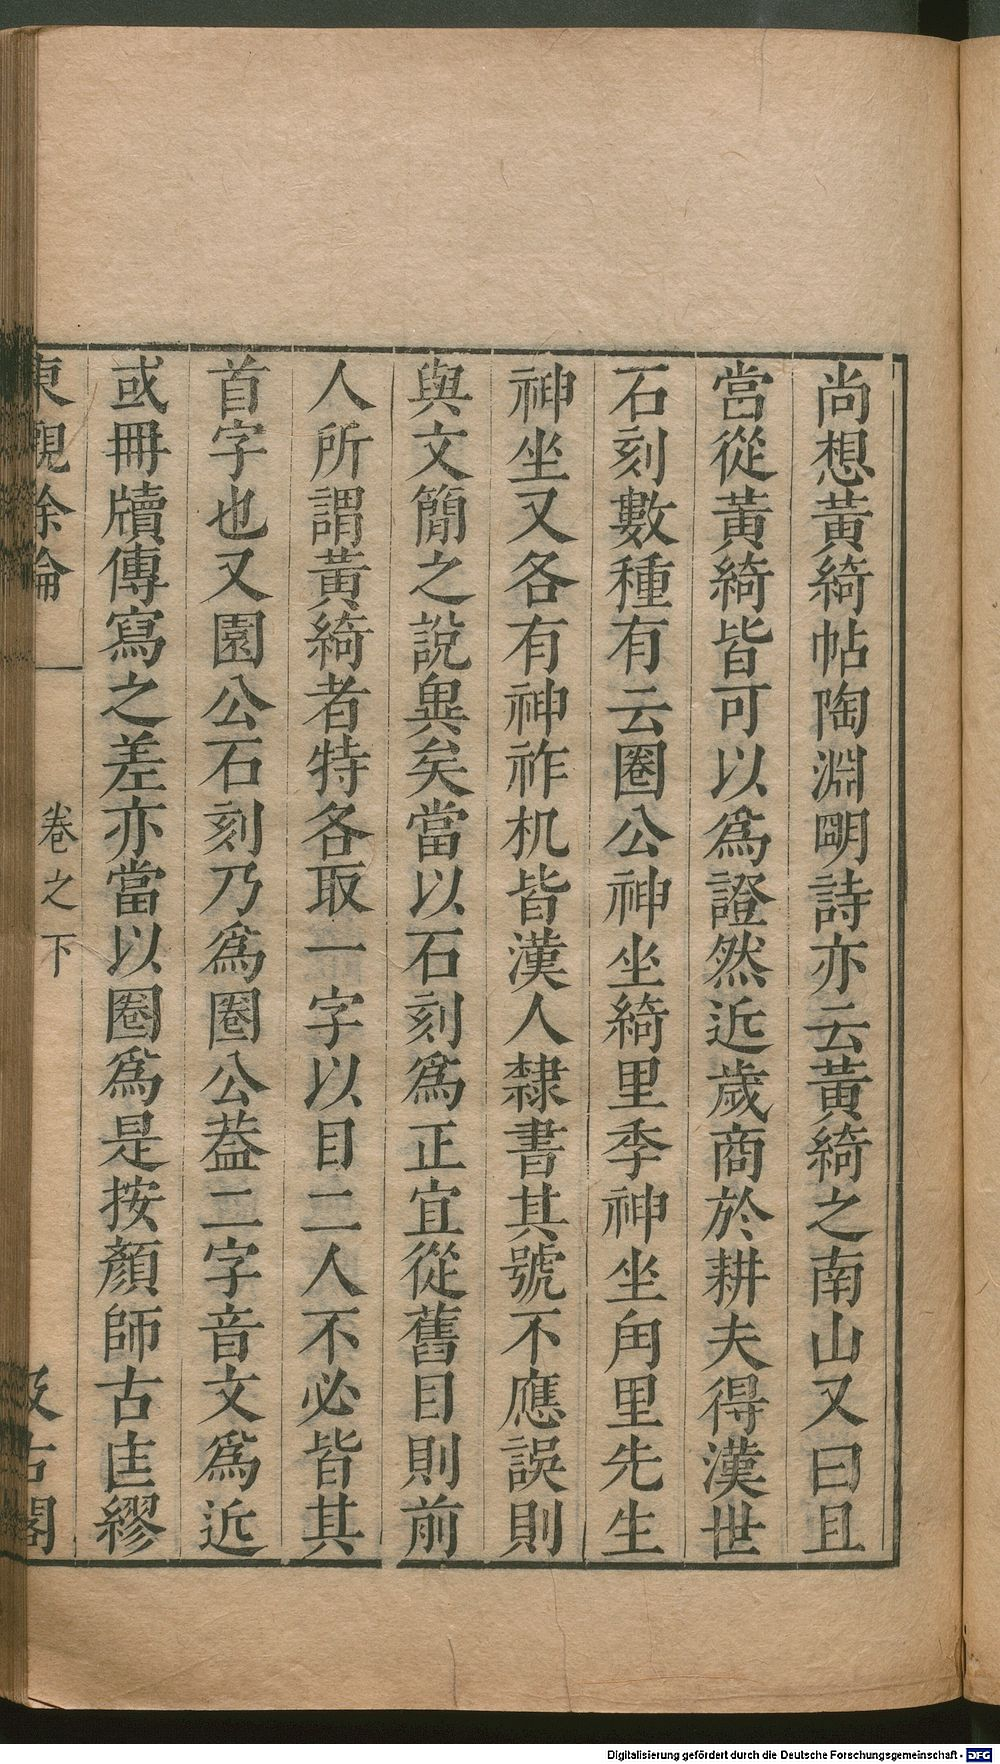 尚想黃綺帖陶淵明詩亦云黃綺之南山又曰且
當從黃綺皆可以爲證然近歲商於耕夫得漢世
石刻數種有云圈公神坐綺里季神坐甪里先生
神坐又各有神祚机皆漢人隸書其號不應誤則
與文簡之說異矣當以石刻爲正宜從舊目則前
人所謂黃綺者特各取一字以目二人不必皆其
首字也又園公石刻乃爲圈公葢二字音文爲近
或冊牘傳寫之差亦當以圈爲是按顏師古匡繆
東觀餘論
卷之下
汲古閣
Digitalisierung gefördert durch die Deutsche Forschungsgemeinschaft - DFG